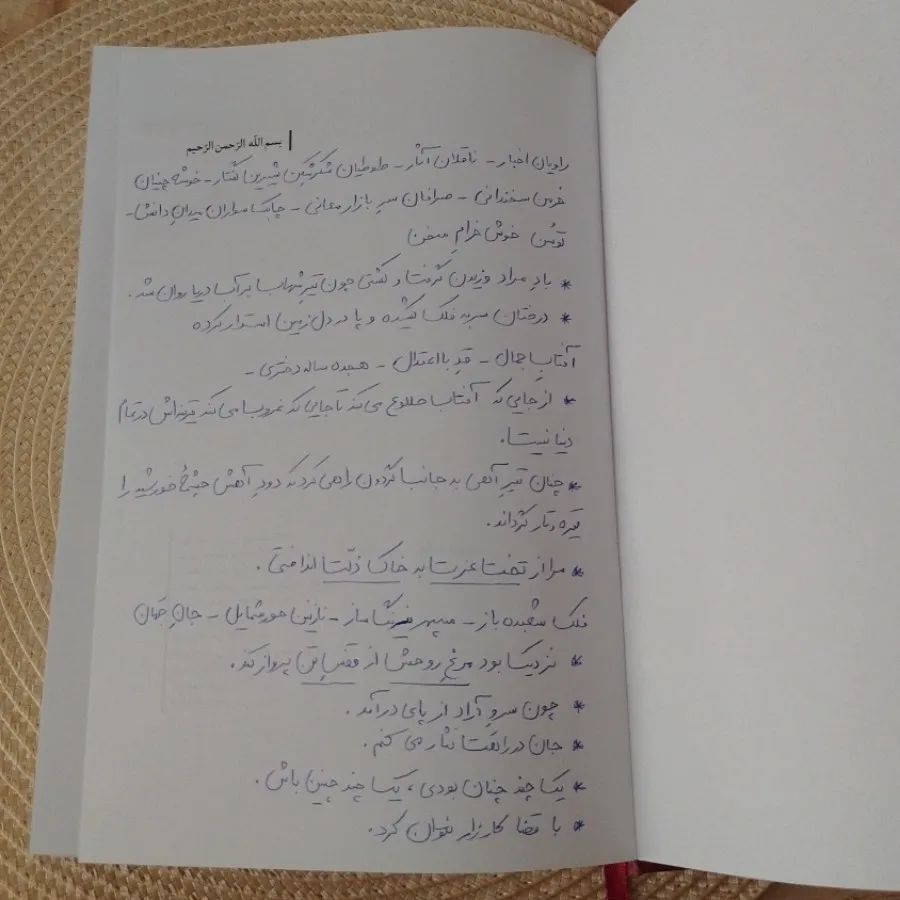 بسم الله الرحمن الرحیم
راویان اخبار - ناقلان آثار - طوطیان شکرشکن شیرین گفتار - خوشه چینان
خرمن سخندانی - صرافان سرِ بازار معانی - چابک سواران میدانِ دانش -
توسن خوش خرامِ سخن
* بادِ مراد وزیدن گرفت و کشتی چون تیرِ شهاب بر آب دریا روان شد.
* درختان سر به فلک کشیده و پا در دل زمین استوار کرده
آفتابِ جمال - قدِ با اعتدال - هجده ساله دختری -
* از جایی که آفتاب طلوع می کند تا جایی که غروب می کند قرینه اش در تمام
دنیا نیست.
* چنان تیرِ آهی به جانب گردون راهی کرد که دودِ آهش چشمهٔ خورشید را
تیره و تار گرداند.
* مرا از تخت عزت به خاک ذلّت انداختی.
فلک شعبده باز - سپهر نیرنگ ساز - نازنین حور شمایل - جانِ جهان
* نزدیک بود مرغِ روحش از قفسِ تن پرواز کند.
* چون سروِ آزاد از پای درآمد.
* جان در راهت نثار می کنم.
* یک چند چنان بودی، یک چند چنین باش.
* با قضا کارزار نتوان کرد.